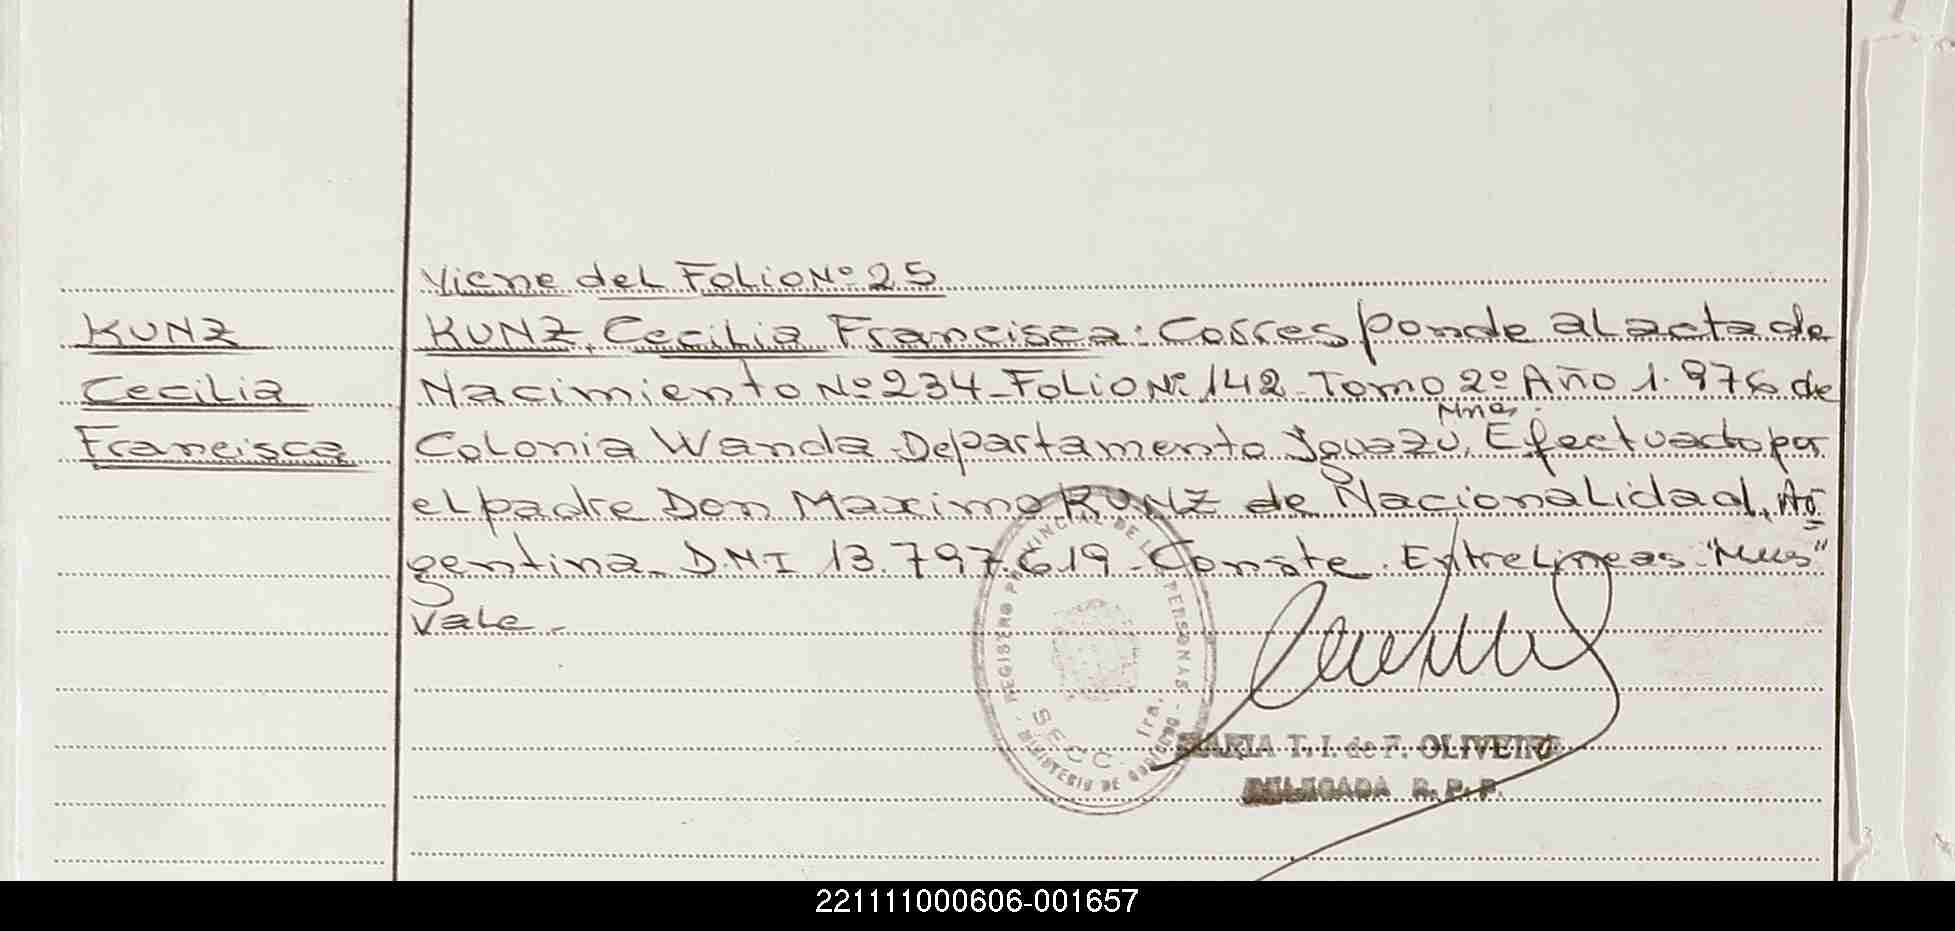 Viene del Folio Nº 25
KUNZ
Cecilia
Francisca
KUNZ, Cecilia Francisca: Corresponde al acta de
Nacimiento Nº 234 - Folio Nº 142 - Tomo 2º Año 1.976 de
Colonia Wanda - Departamento Iguazú, Mnes. Efectuado por
el padre Don Maximo KUNZ de Nacionalidad Ar
gentina - D.N.I 13.797.619 - Conste. Entrelineas: "Mnes"
Vale -
REGISTRO PROVINCIAL DE LAS PERSONAS
MINISTERIO DE GOBIERNO
SECC. 1ra.
MARIA T. I. de F. OLIVEIRA
DELEGADA R. P. P.
221111000606-001657